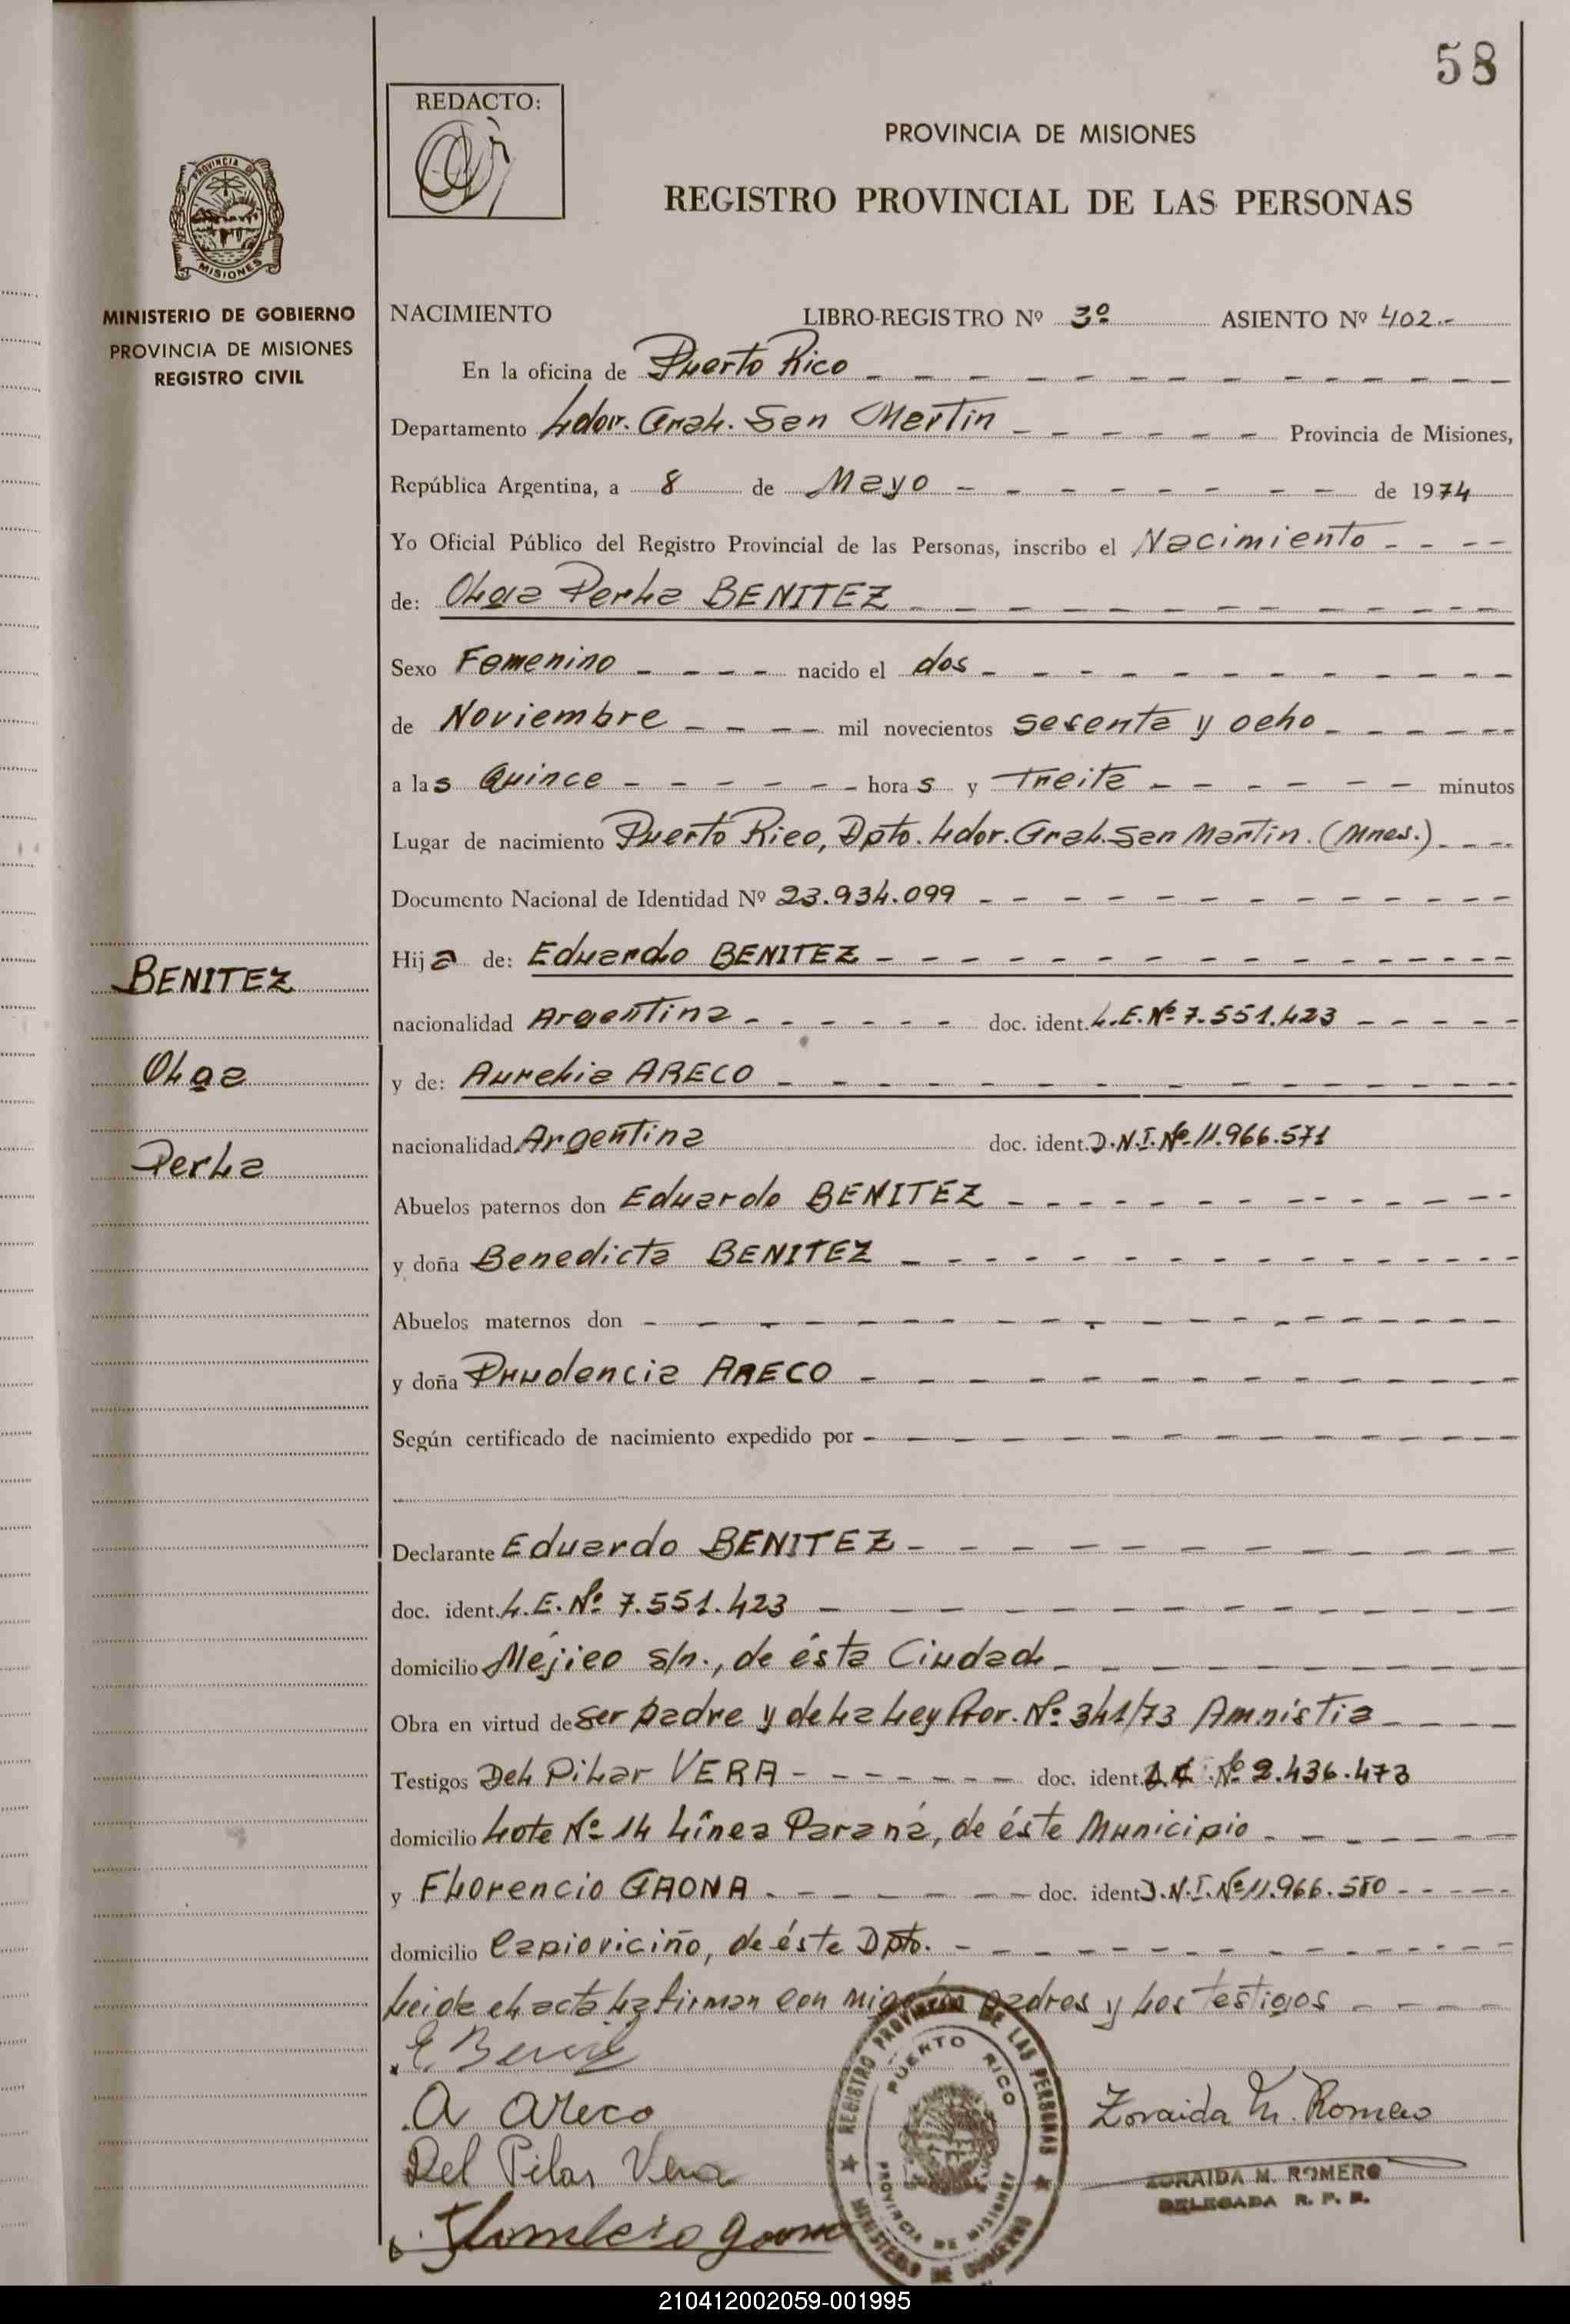 58
REDACTO:
PROVINCIA DE MISIONES
REGISTRO PROVINCIAL DE LAS PERSONAS
PROVINCIA DE
MISIONES
MINISTERIO DE GOBIERNO
PROVINCIA DE MISIONES
REGISTRO CIVIL
NACIMIENTO LIBRO-REGISTRO Nº 3º ASIENTO Nº 402.-
En la oficina de Puerto Rico
Departamento Ldor. Gral. San Martin Provincia de Misiones,
República Argentina, a 8 de Mayo de 1974
Yo Oficial Público del Registro Provincial de las Personas, inscribo el Nacimiento
de: Olga Perla BENITEZ
Sexo Femenino nacido el dos
de Noviembre mil novecientos sesenta y ocho
a las Quince horas y Treita minutos
Lugar de nacimiento Puerto Rico, Dpto. Ldor. Gral. San Martin. (Mnes.)
Documento Nacional de Identidad Nº 23.934.099
BENITEZ
Olga
Perla
Hija de: Eduardo BENITEZ
nacionalidad Argentina doc. ident. L.E. Nº 7.551.423
y de: Aurelia ARECO
nacionalidad Argentina doc. ident. D.N.I. Nº 11.966.571
Abuelos paternos don Eduardo BENITEZ
y doña Benedicta BENITEZ
Abuelos maternos don
y doña Prudencia ARECO
Según certificado de nacimiento expedido por
Declarante Eduardo BENITEZ
doc. ident. L.E. Nº 7.551.423
domicilio Méjico s/n., de ésta Ciudad
Obra en virtud de ser padre y de la Ley Pror. Nº 341/73 Amnistia
Testigos Del Pilar VERA doc. ident. Nº 2.436.473
domicilio Lote Nº 14 Línea Paraná, de éste Municipio
y Florencio GAONA doc. ident. D.N.I. Nº 11.966.580
domicilio Capioviciño, de éste Dpto.
Leida el acta la firman con migo los padres y los testigos
A Areco
Del Pilar Vera
Zoraida M. Romero
ZORAIDA M. ROMERO
DELEGADA R. P. P.
REGISTRO PROVINCIAL DE LAS PERSONAS
PUERTO RICO
PROVINCIA DE MISIONES
MINISTERIO DE GOBIERNO
210412002059-001995